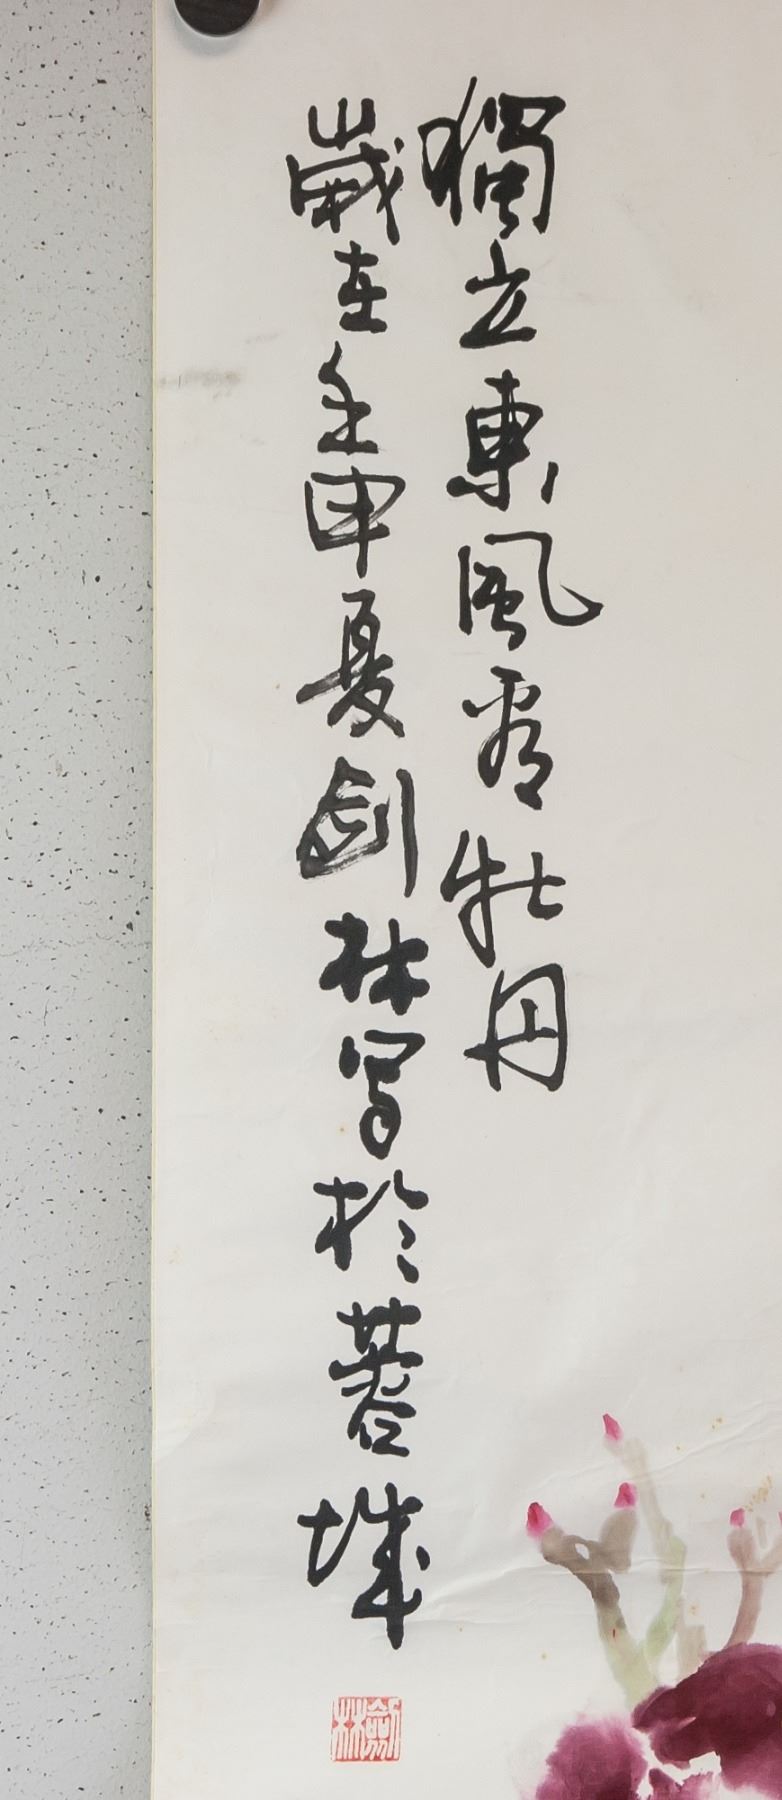 獨立東風看牡丹
歲在壬申夏劍林写於蓉城
劍林